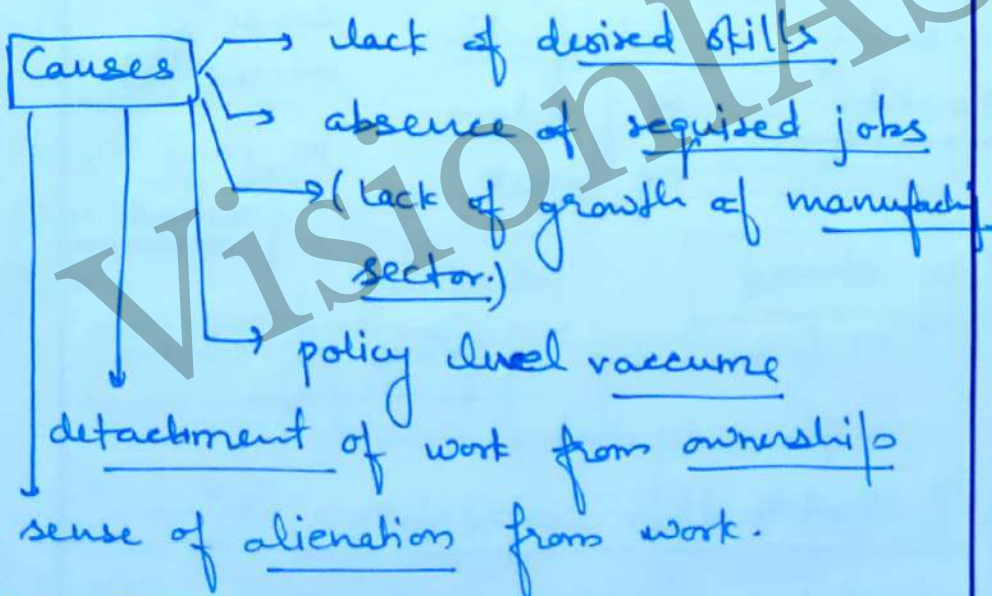 Causes
lack of desired skills
absence of required jobs
(lack of growth of
sector.)
policy level vaccume
detachment of work from ownership
sense of alienation from work.
VisionIAS